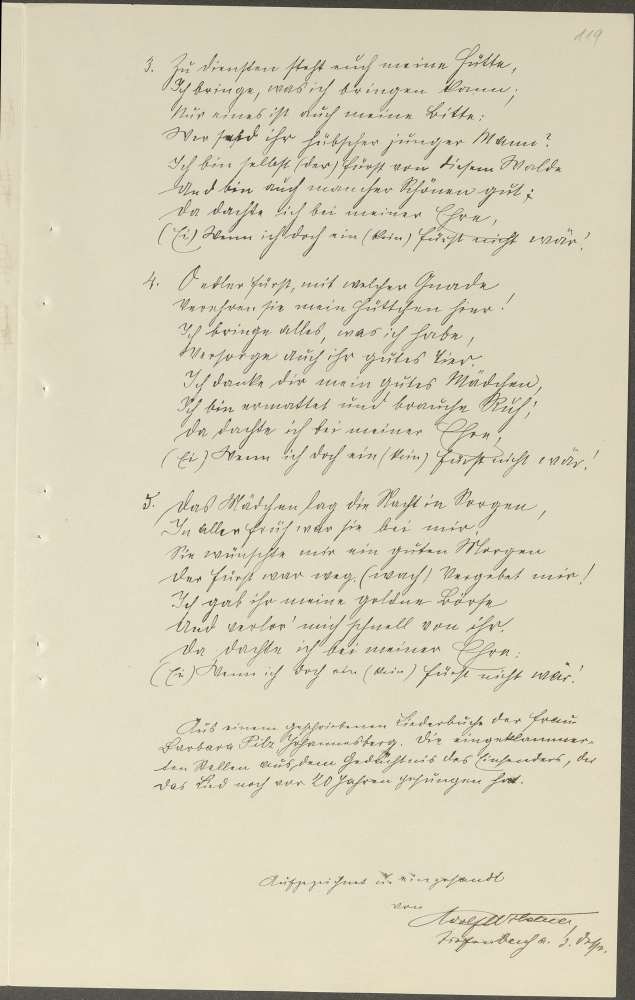 119
3. Zu Diensten steht euch meine Hütte,
Ich bringe, was ich bringen kann;
Nur eines ist auch meine Bitte:
Wer seid ihr hübscher junger Mann?
Ich bin selbst (der) Fürst von diesem Walde
Und bin auch mancher Schönen gut;
Da dachte ich bei meiner Ehre,
(Ei) Wenn ich doch ein (kein) Fürst nicht wär!
4. O edler Fürst, mit welcher Gnade
Verehren sie mein Hüttchen hier!
Ich bringe alles, was ich habe,
Versorge auch ihr gutes Tier.
Ich danke dir mein gutes Mädchen,
Ich bin ermattet und brauche Ruh;
Da dachte ich bei meiner Ehre,
(Ei) Wenn ich doch ein (kein) Fürst nicht wär!
5. Das Mädchen lag die Nacht in Sorgen,
In aller Früh war sie bei mir.
Sie wünschte mir ein guten Morgen
Der Fürst war weg. (wach) Vergebet mir!
Ich gab ihr meine goldne Börse
Und verlor' mich schnell von ihr.
Da dachte ich bei meiner Ehre:
(Ei) Wenn ich doch ein (kein) Fürst nicht wär!
Aus einem geschriebenen Liederbuche der Frau
Barbara Pilz Johannesberg. Die eingeklammer-
ten Stellen aus dem Gedächtnis des Einsenders, der
das Lied noch vor 20 Jahren gesungen hat.
Aufgezeichnet u. eingesandt
von
Adolf